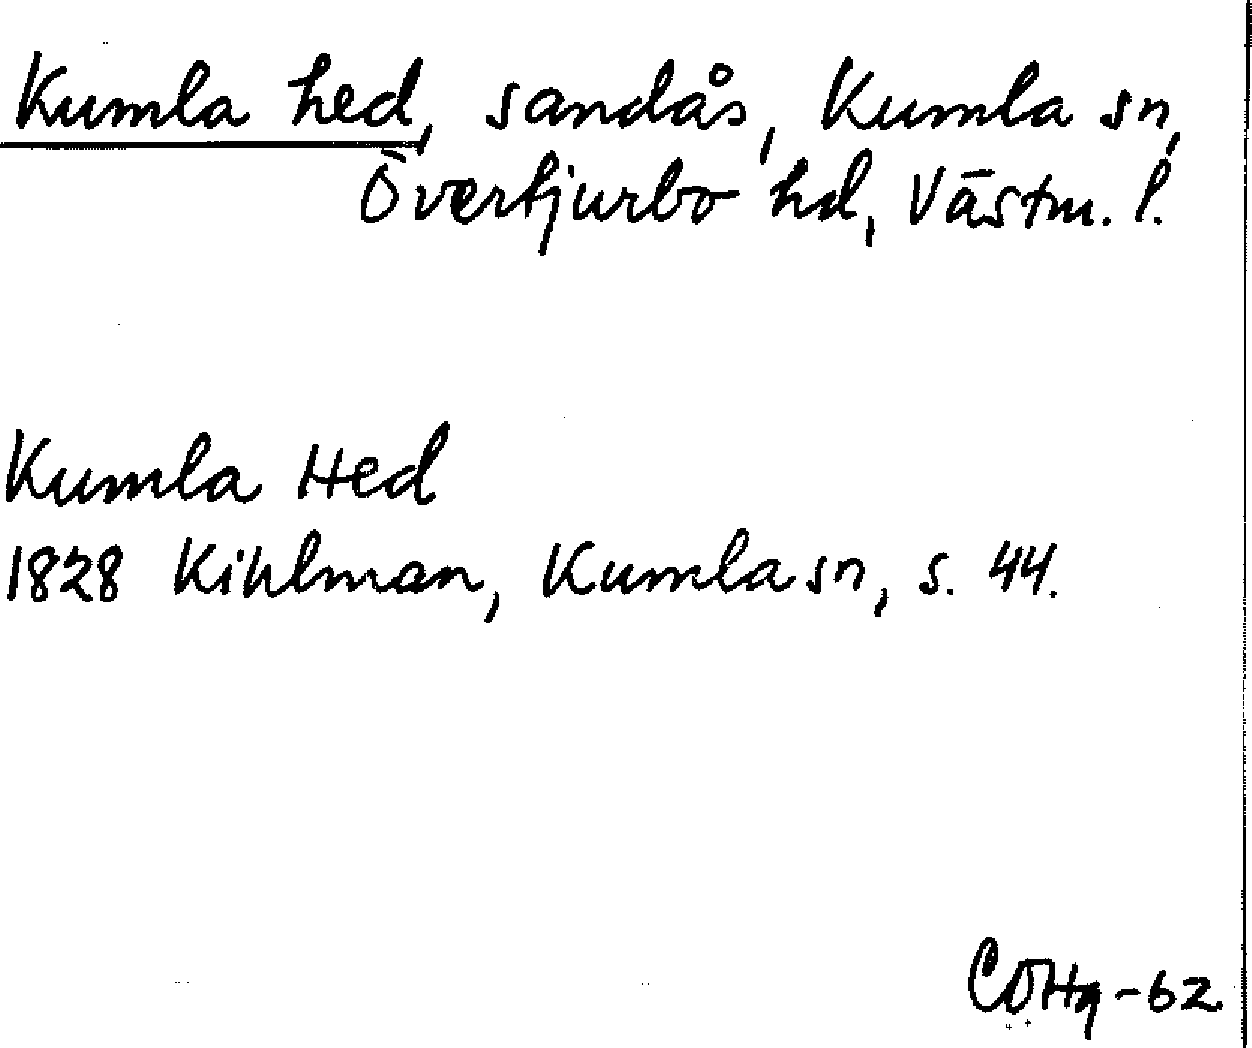 Kumla hed, sandås, Kumla sn,
Övertjurbo hd, Västm. l.
Kumla Hed
1828 Kihlman, Kumla sn, s. 44.
COHq-62